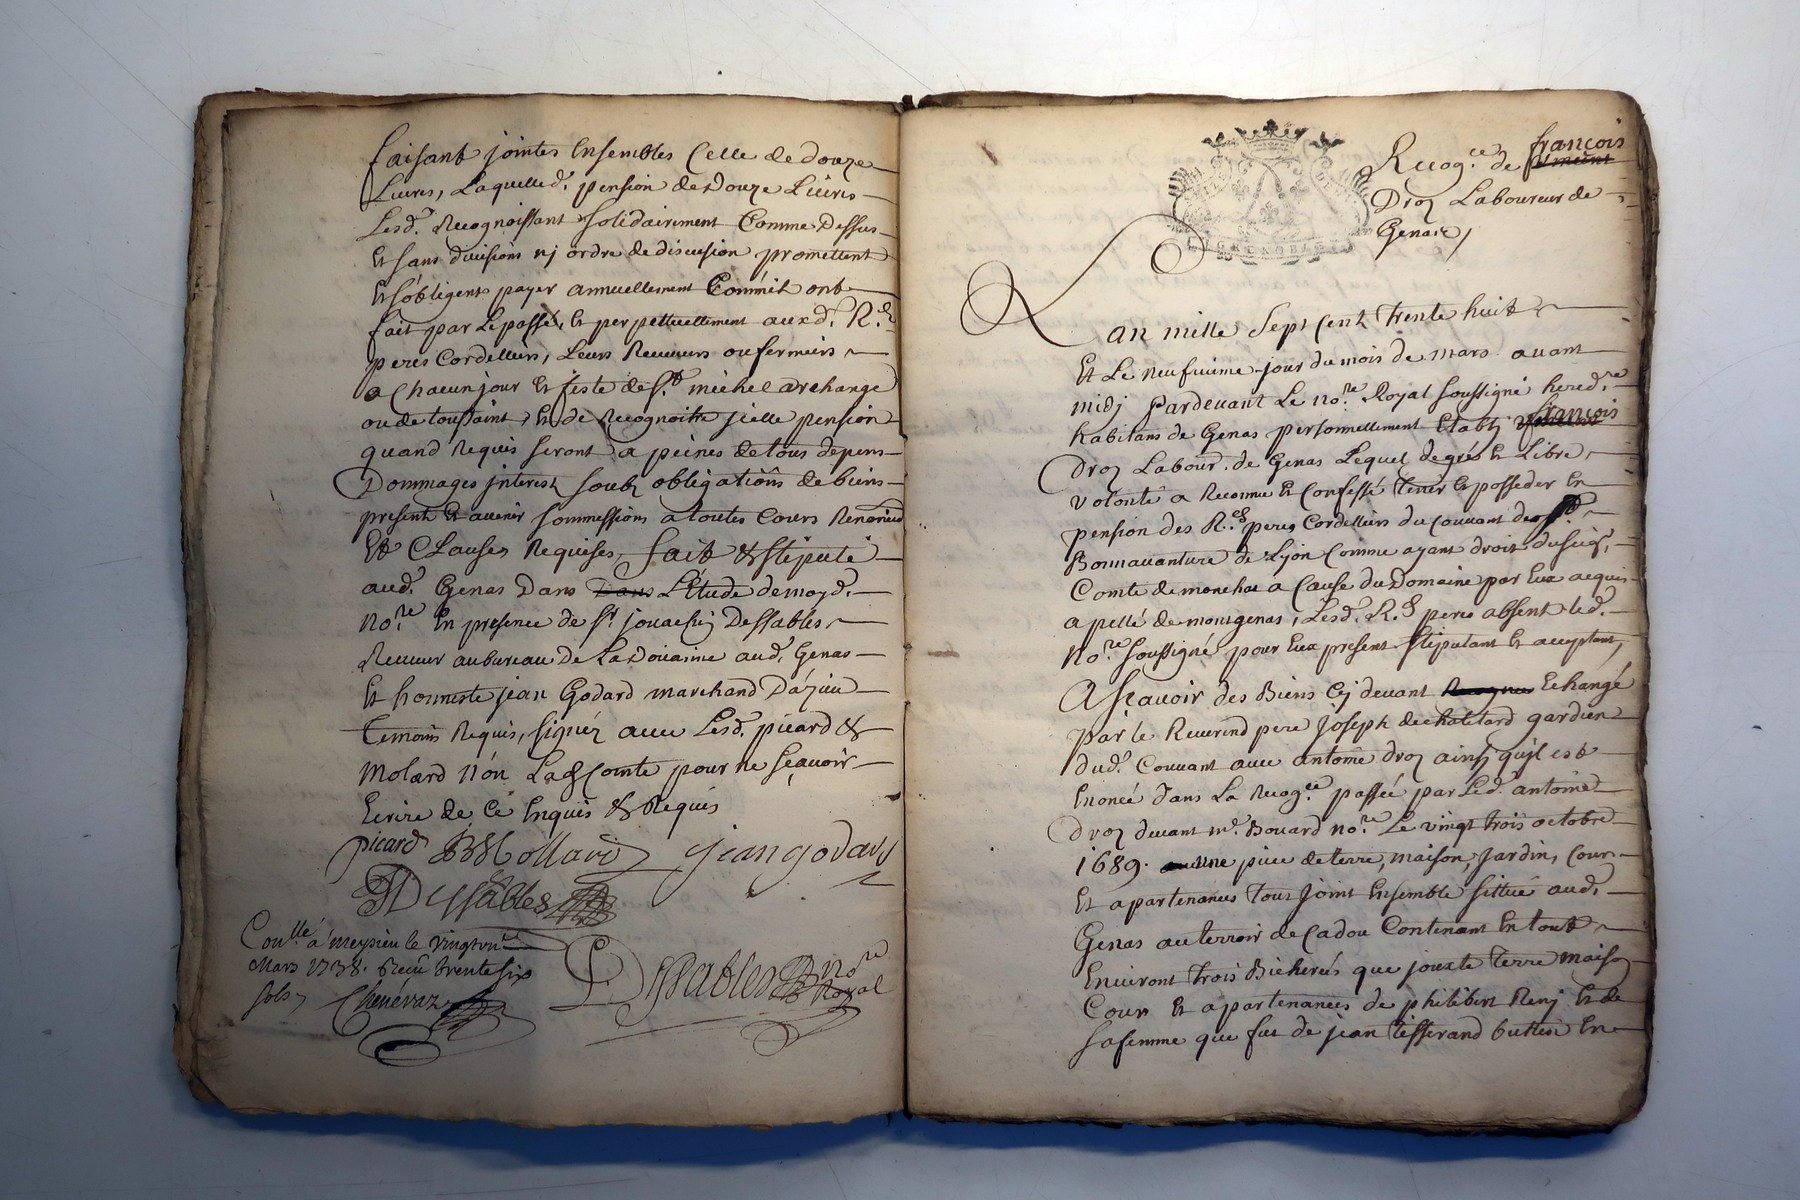 faisant jointes Ensembles Celle de douze
Livres, Laquelle d. pension de douze Livres
Lesd. Recognoissant solidairement Comme Dessus
Et sans divisions nj ordre de discusion promettent
Et s'obligent payer annuellement Comme ils ont
fait par Le passé, et perpetuellement auxd. R.ds
peres Cordelliers, Leurs Receveurs ou fermiers
a Chacun jour et feste de St. michel archange
ou de toussaint, Et de Recognoitre jcelle pension
quand Requis seront a peines de tous depens
Dommages jnterest soubz obligations de biens
present Et avenir sommissions a toutes Cours Renonces
Et Clauses Requises, fait & stipulé
aud. Genas Dans L'étude de moyd.
No.re En presence de Sr. jouachin Dessables
Receveur au bureau de La Doüaine aud. Genas
Et honneste jean Godard marchand D'azieu
Temoins Requis, signéz avec Lesd. picard &
Molard non Lad. Comte pour ne sçavoir
Ecrire de Ce Enquis & Requis
picard B Mollard jean godard
Dessables
Con.llé a meysieu le vingt un
Mars 1738. Receu trente six
sols Chenévaz
Dessables No.re Royal
Recog.ce de françois
Droz Laboureur de
Genas
GRENOBLE
L'an mille Sept Cent Trente huit
Et Le neufvieme jour du mois de mars avant
midj Pardevant Le no.re Royal soussigné hered.re
habitans de Genas personnellement Etablj françois
Droz Labour. de Genas Lequel de gré et Libre
volonté a Reconnu et Confessé tenir et posseder En
pension des R.ds peres Cordelliers du Couvant de St.
Bonnavanture de Lyon Comme ayant droit du seig.
Comte de monchae a Cause du Domaine par Eux acquis
apellé de montgenas, Lesd. R.ds peres absent Led.
No.re soussigné pour Eux present stipulant et acceptant,
A Sçavoir des Biens Cy devant Echangé
par le Reverend pere joseph de chatelard gardien
dud. Couvant avec antoine droz ainsj qu'jl est
Enoncé dans La Recog.ce passée par Led. antoine
Droz devant m.e Bouard no.re Le vingt trois octobre
1689. une piece de terre, maison, jardin, Cour
Et apartenances tout joint Ensemble sittué aud.
Genas au terroir de Cadou Contenant En tout
Environt trois Bicherées que jouxte terre maison
Cour Et apartenances de philibert Renj Et de
sa femme que fut de jean tisserand buttin En